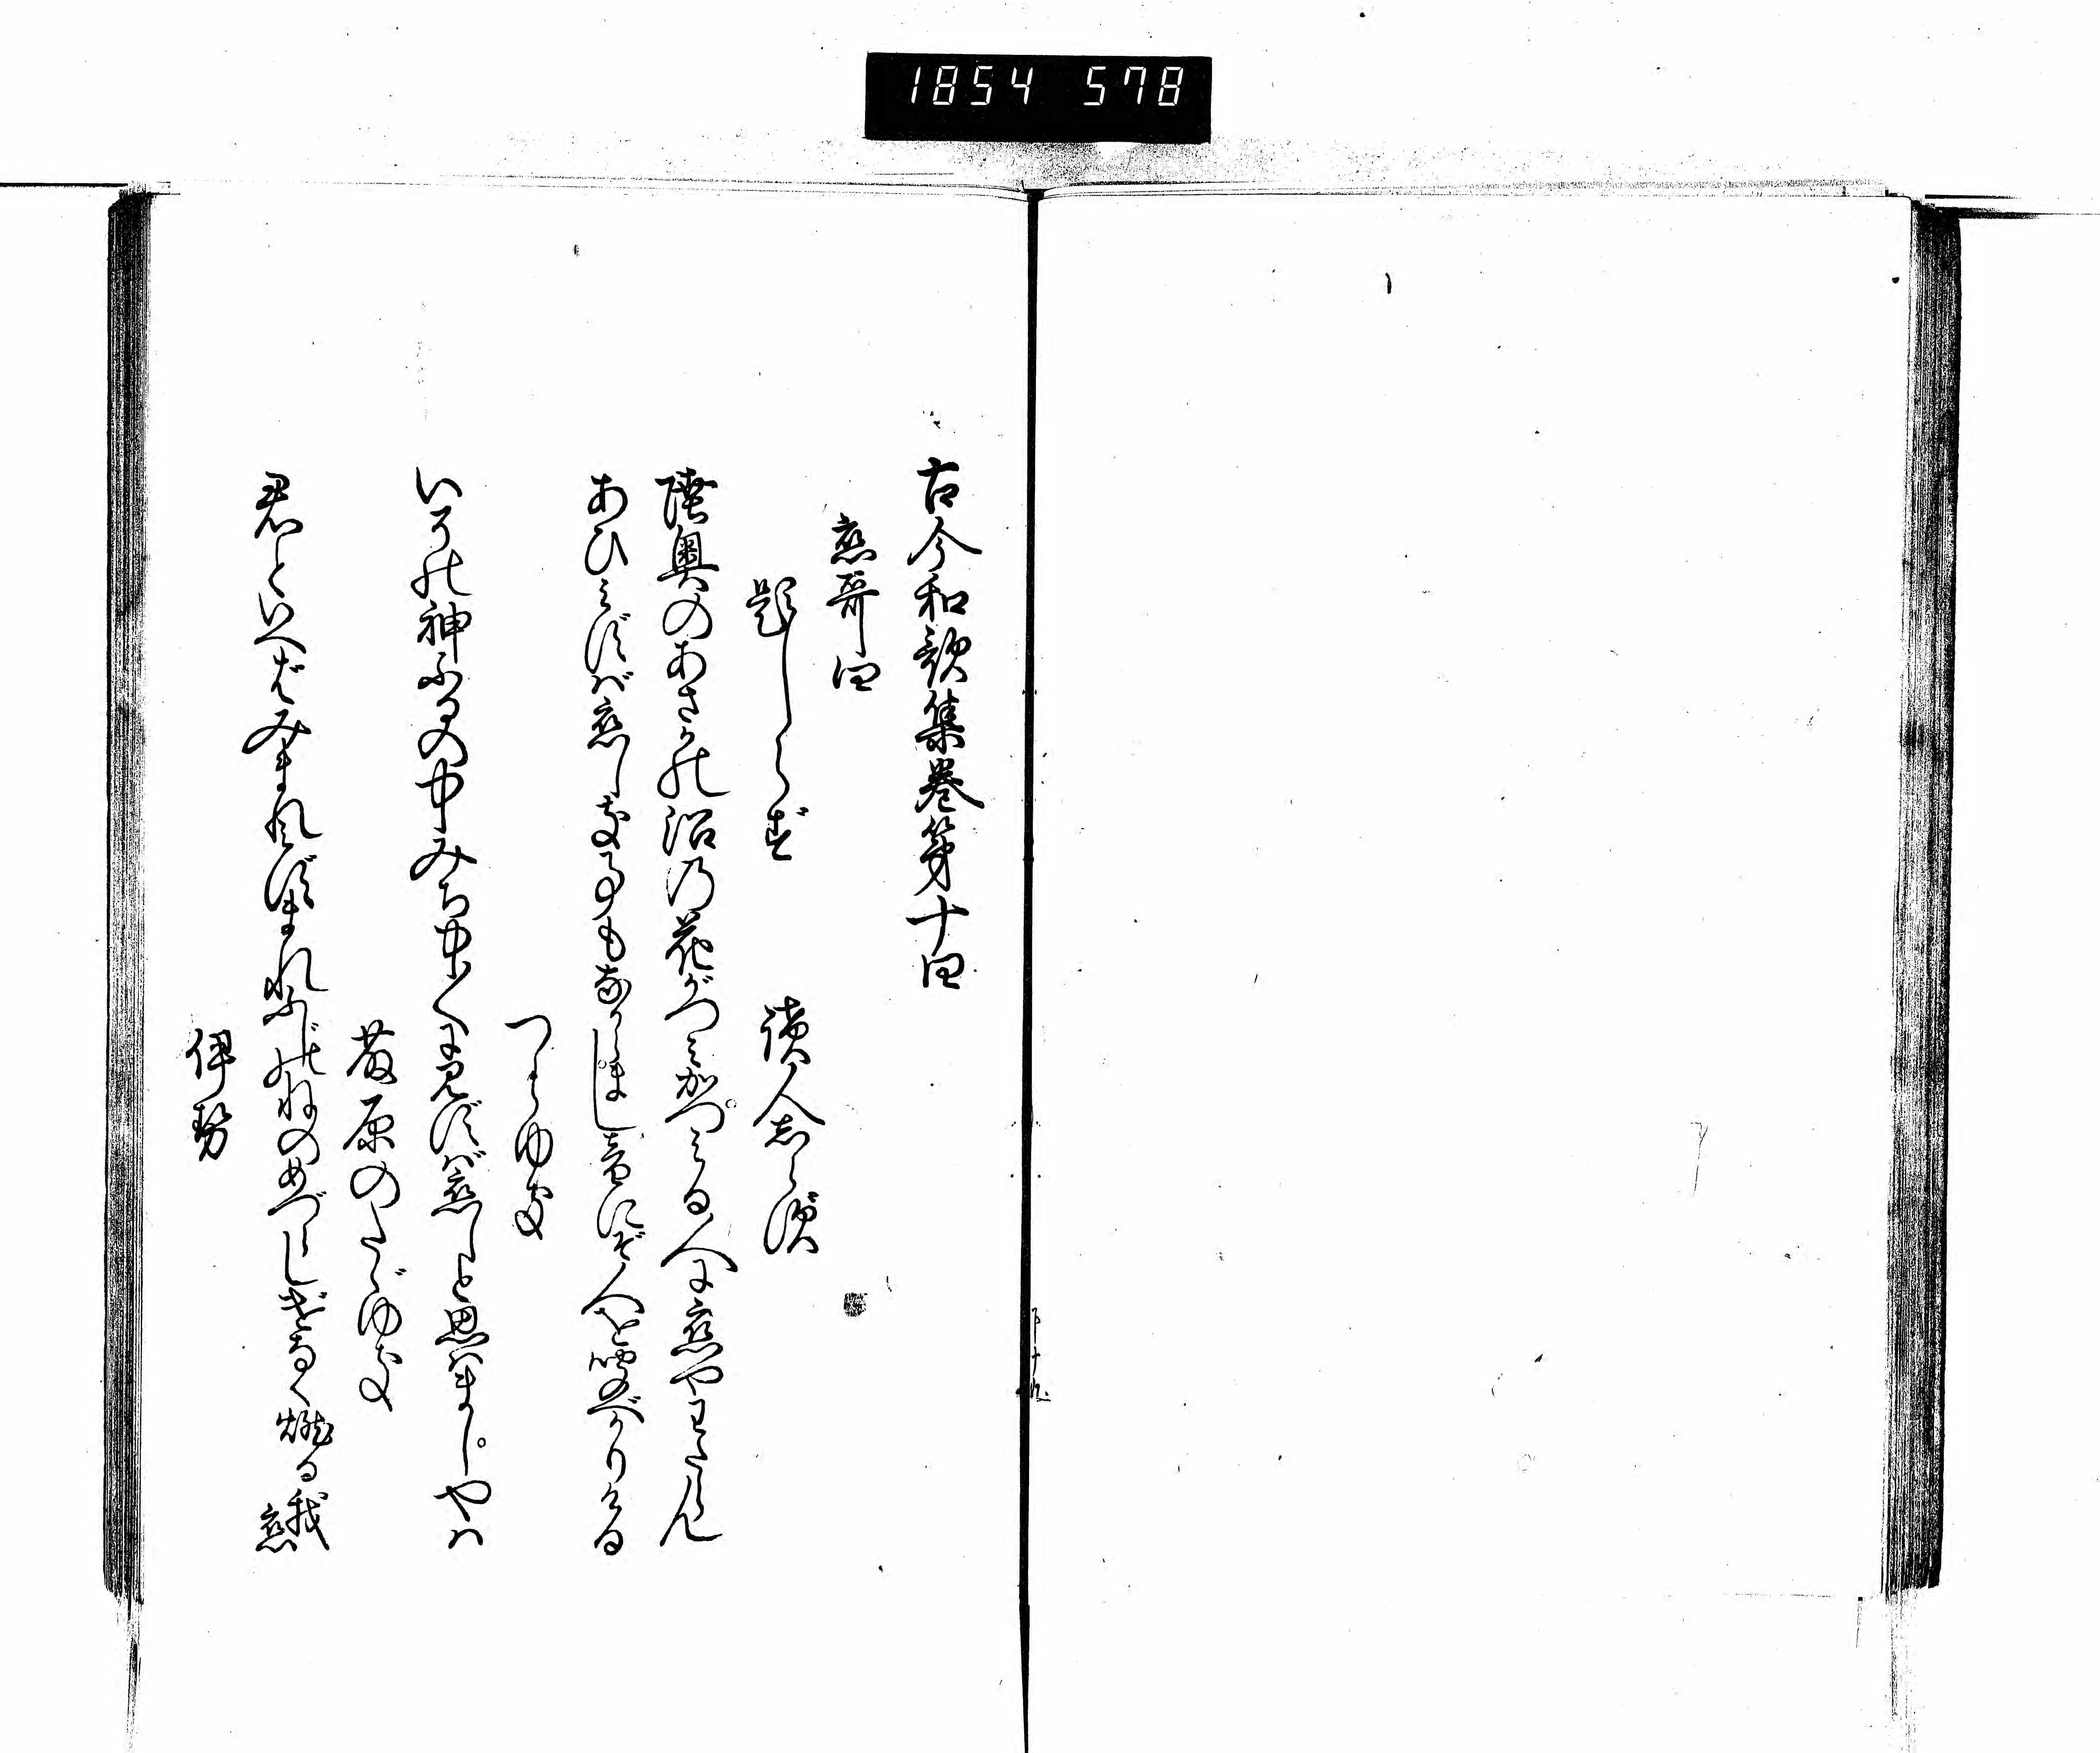 1854 578
古今和歌集巻第十四
恋哥四
題しらず
読人志らず
陸奥のあさかの沼の花がつみかつみる人に恋やわたらん
あひみずば恋しき事もなからまし音にぞ人を聞べかりける
つらゆき
いその神ふるの中みち中〱に見ずば恋しと思はましやは
藤原のたゞゆき
君といへばみまれみずまれふじのねのめづらしげなく燃る我恋
伊勢